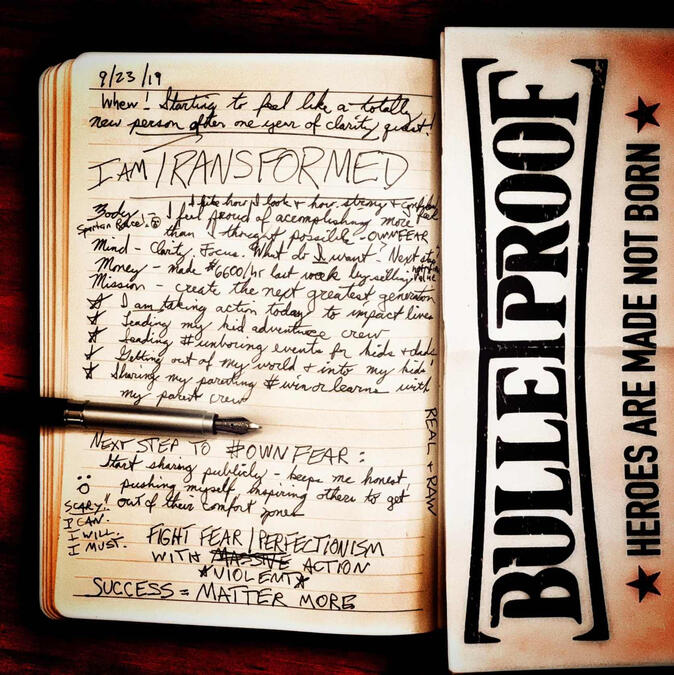 9/23/19
Whew! Starting to feel like a totally
new person after one year of clarity quest!
I AM TRANSFORMED
I like how I look & how strong & confident I feel
Body! - I feel proud of accomplishing more
Spartan Race!
than I thought possible - OWNFEAR
Mind - Clarity. Focus. What do I want? Next step?
Money - made $6600/hr last week by selling, not time value
Mission - create the next greatest generation
I am taking action today to impact lives
Leading my kid adventure crew
Leading #unboring events for kids & dads
Getting out of my world & into my kids'
Sharing my parenting #winorlearns with
my parent crew
REAL & RAW
NEXT STEP TO #OWNFEAR:
Start sharing publicly - keeps me honest,
pushing myself, inspiring others to get
out of their comfort zones
SCARY!!
I CAN.
I WILL.
I MUST.
FIGHT FEAR/PERFECTIONISM
WITH MASSIVE ACTION
*VIOLENT*
SUCCESS = MATTER MORE
BULLETPROOF
★ HEROES ARE MADE NOT BORN ★